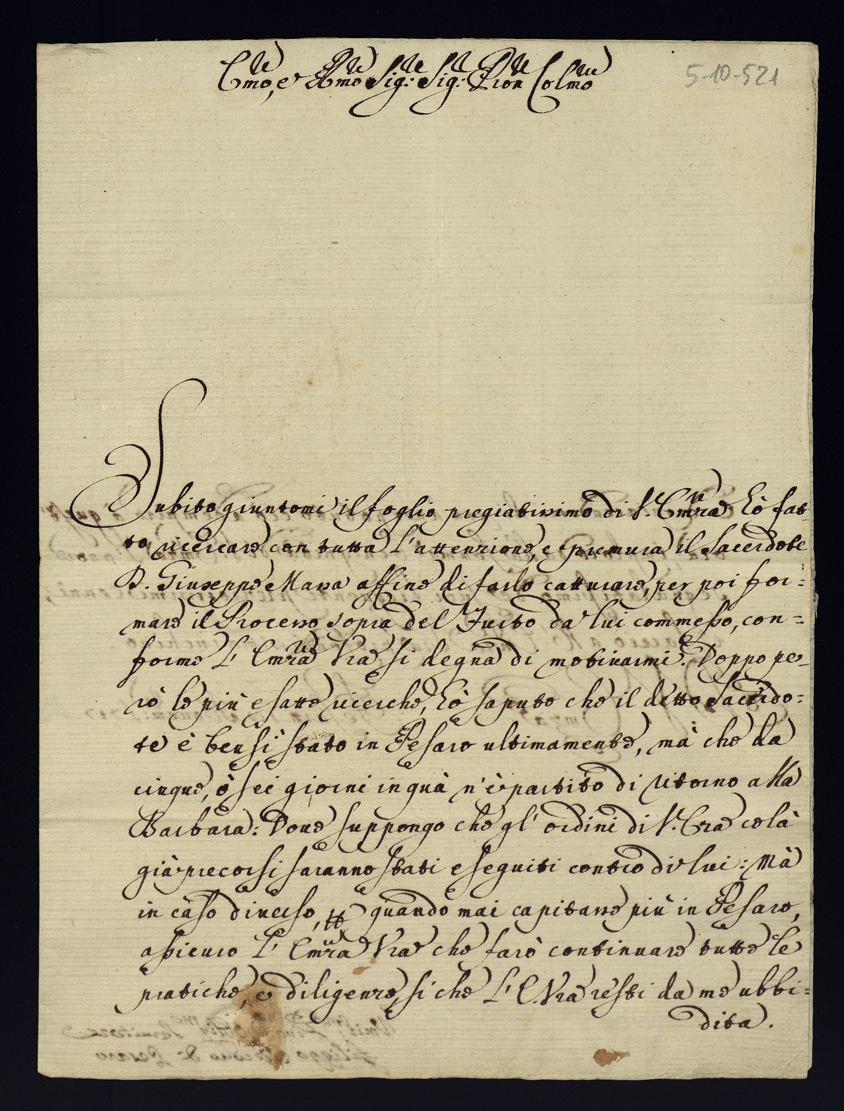 Emo, e Rmo Sig.r Sig.r Pron Colmo
5-10-521
Subito giuntomi il foglio pregiatissimo di V. Emza hò fat-
to ricercare con tutta l'attenzione, e premura il Sacerdote
D. Giuseppe Massa affine di farlo catturare, per poi for=
mare il Processo sopra del Furto da lui commesso, con=
forme l'Emza Vra si degna di motivarmi. Doppo pe-
rò le più esatte ricerche, hò saputo che il detto Sacerdo=
te è bensì stato in Pesaro ultimamente, mà che da
cinque, ò sei giorni in quà n'è partito di ritorno alla
Barbara: Dove suppongo che gl'ordini di V. Eza colà
già precorsi saranno stati eseguiti contro di lui: Mà
in caso diverso, # quando mai capitare più in Pesaro,
assicuro l'Emza Vra che farò continuare tutte le
pratiche, e diligenze, si che l'E. Vra resti da me ubbi=
dita.